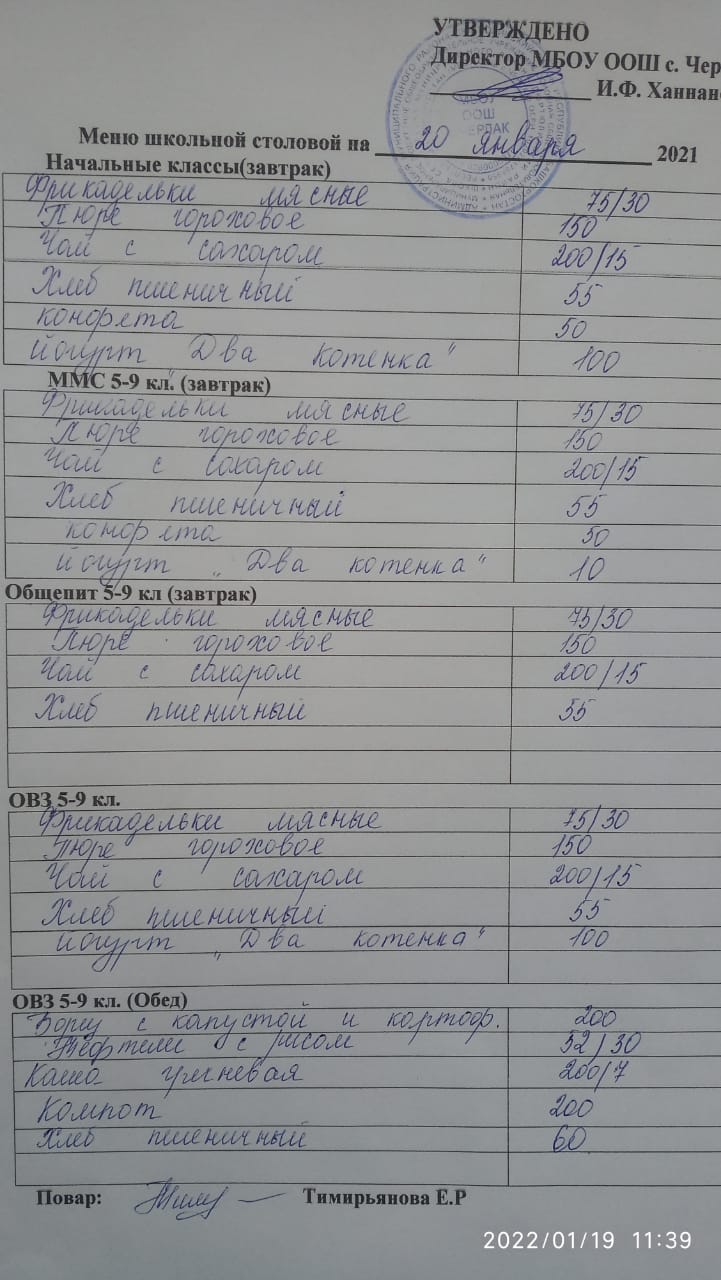 УТВЕРЖДЕНО
Директор МБОУ ООШ с. Чер
И.Ф. Ханнан
МБОУ
ООШ
ЧЕРЛАК
Меню школьной столовой на 20 января 2021
Начальные классы(завтрак)
Фрикадельки мясные 75/30
Пюре гороховое 150
Чай с сахаром 200/15
Хлеб пшеничный 55
конфета 50
йогурт „Два котенка" 100
ММС 5-9 кл. (завтрак)
Фрикадельки мясные 75/30
Пюре гороховое 150
Чай с сахаром 200/15
Хлеб пшеничный 55
конфета 50
йогурт „Два котенка" 10
Общепит 5-9 кл (завтрак)
Фрикадельки мясные 75/30
Пюре гороховое 150
Чай с сахаром 200/15
Хлеб пшеничный 55
ОВЗ 5-9 кл.
Фрикадельки мясные 75/30
Пюре гороховое 150
Чай с сахаром 200/15
Хлеб пшеничный 55
йогурт „Два котенка" 100
ОВЗ 5-9 кл. (Обед)
Борщ с капустой и картоф. 200
Тефтели с рисом 52/30
Каша гречневая 200/7
Компот 200
Хлеб пшеничный 60
Повар: Тимирьянова Е.Р
2022/01/19 11:39